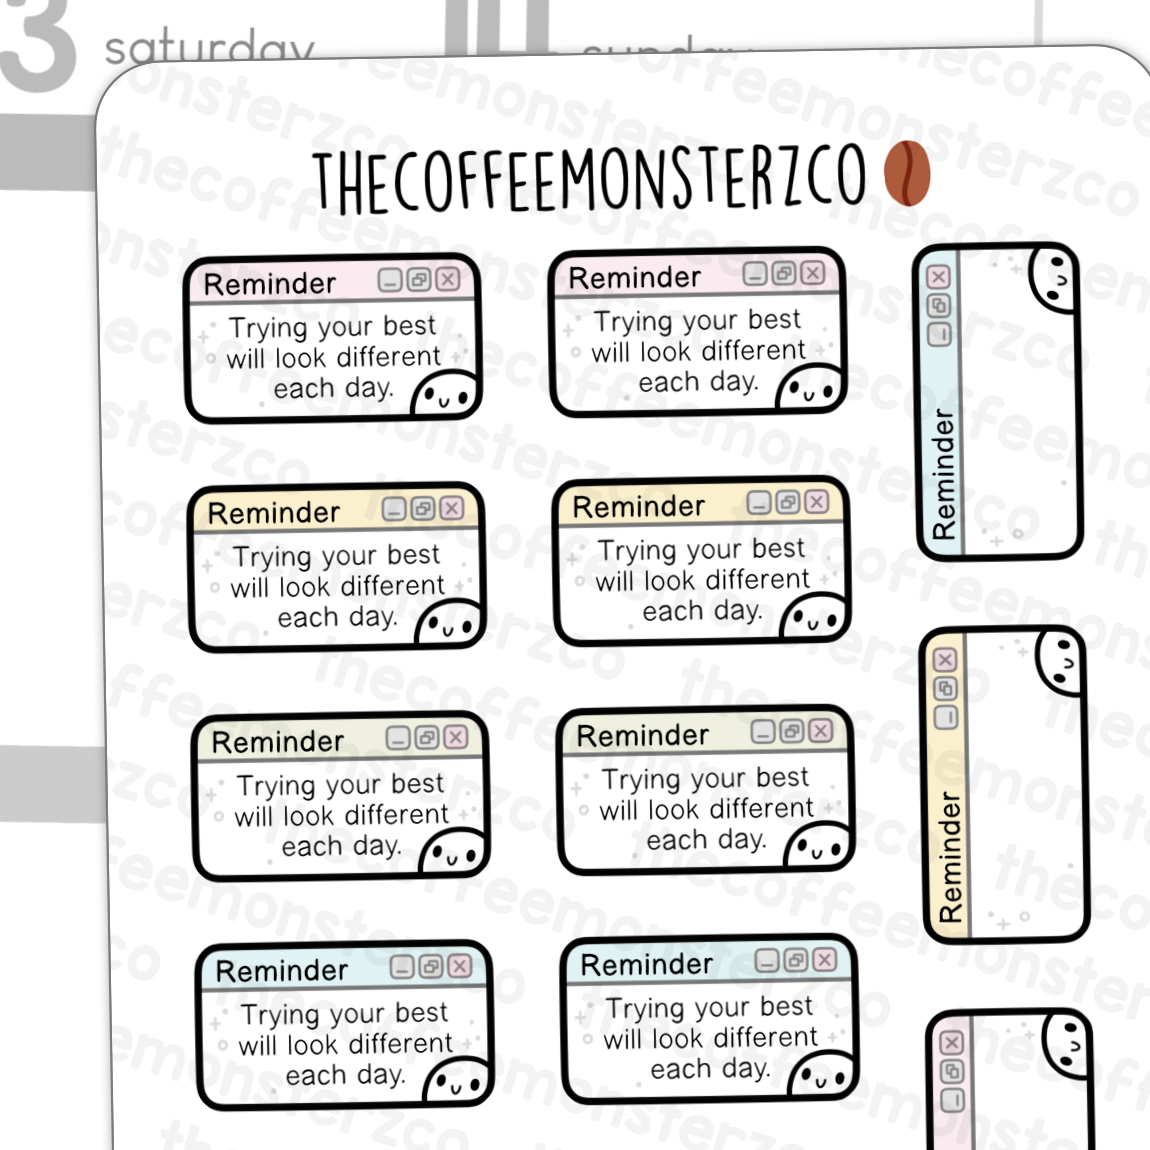 3 saturday
14 sunday
THECOFFEEMONSTERZCO
Reminder
Trying your best
will look different
each day.
Reminder
Trying your best
will look different
each day.
Reminder
Reminder
Trying your best
will look different
each day.
Reminder
Trying your best
will look different
each day.
Reminder
Reminder
Trying your best
will look different
each day.
Reminder
Trying your best
will look different
each day.
Reminder
Trying your best
will look different
each day.
Reminder
Trying your best
will look different
each day.
thecoffeemonsterzco